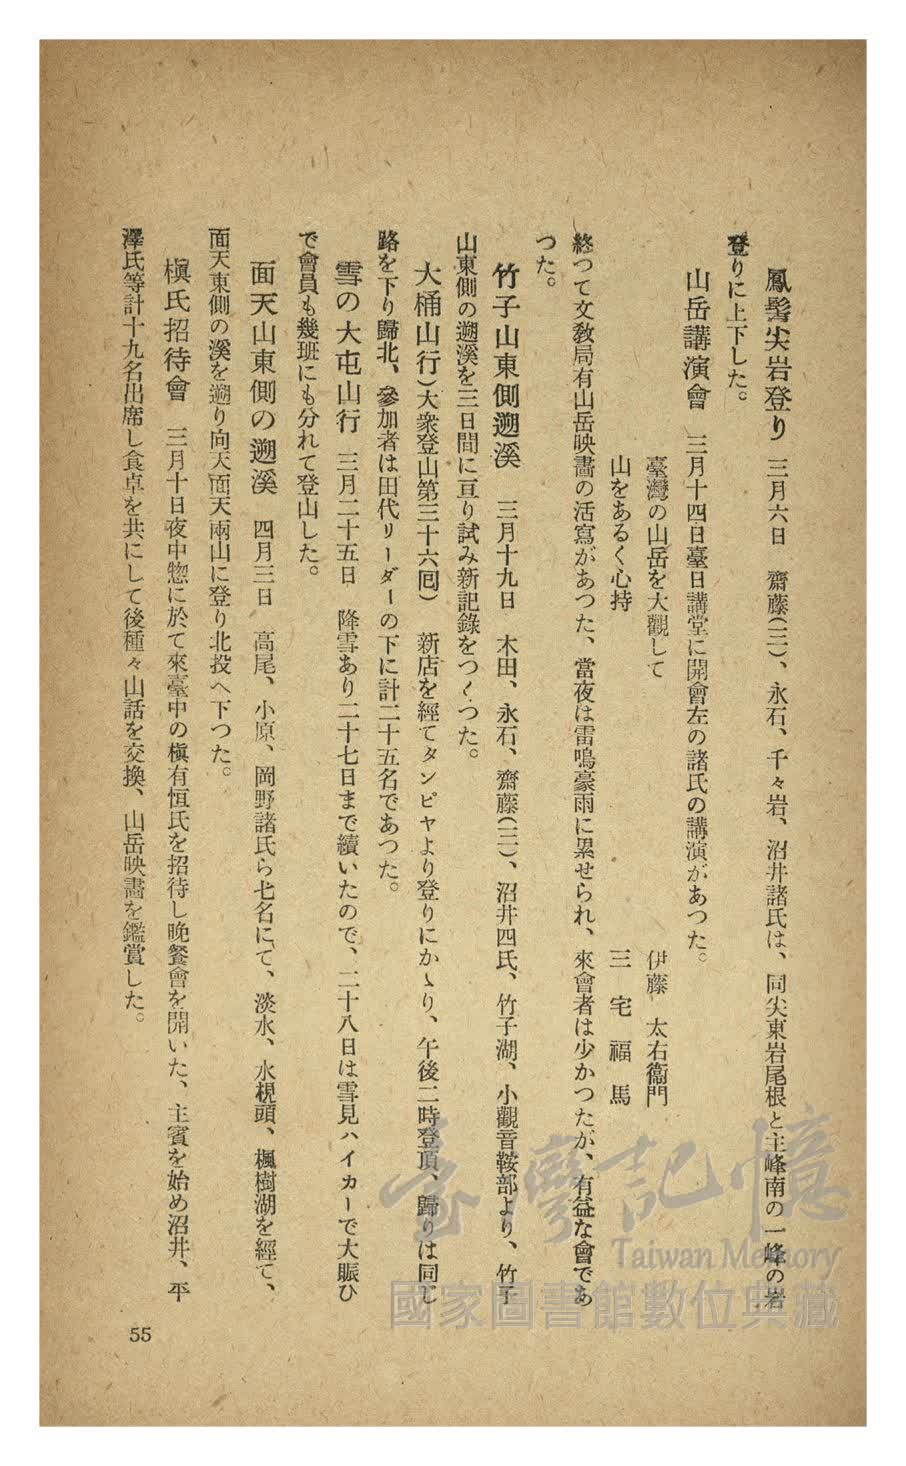 鳳髻尖岩登り　三月六日　齋藤(三)、永石、千々岩、沼井諸氏は、同尖東岩尾根と主峰南の一峰の岩
登りに上下した。
山岳講演會　三月十四日臺日講堂に開會左の諸氏の講演があつた。
臺灣の山岳を大觀して　伊藤　太右衞門
山をあるく心持　三　宅　福　馬
終つて文敎局有山岳映畵の活寫があつた、當夜は雷鳴豪雨に累せられ、來會者は少かつたが、有益な會であ
つた。
竹子山東側遡溪　三月十九日　木田、永石、齋藤(三)、沼井四氏、竹子湖、小觀音鞍部より、竹子
山東側の遡溪を三日間に亘り試み新記錄をつくつた。
大桶山行)大衆登山第三十六囘)　新店を經てタンピヤより登りにかゝり、午後二時登頂、歸りは同じ
路を下り歸北、參加者は田代リーダーの下に計二十五名であつた。
雪の大屯山行　三月二十五日　降雪あり二十七日まで續いたので、二十八日は雪見ハイカーで大賑ひ
で會員も幾班にも分れて登山した。
面天山東側の遡溪　四月三日　高尾、小原、岡野諸氏ら七名にて、淡水、水梘頭、楓樹湖を經て、
面天東側の溪を遡り向天面天兩山に登り北投へ下つた。
槇氏招待會　三月十日夜中惣に於て來臺中の槇有恒氏を招待し晩餐會を開いた、主賓を始め沼井、平
澤氏等計十九名出席し食卓を共にして後種々山話を交換、山岳映畵を鑑賞した。
55
臺灣記憶
Taiwan Memory
國家圖書館數位典藏